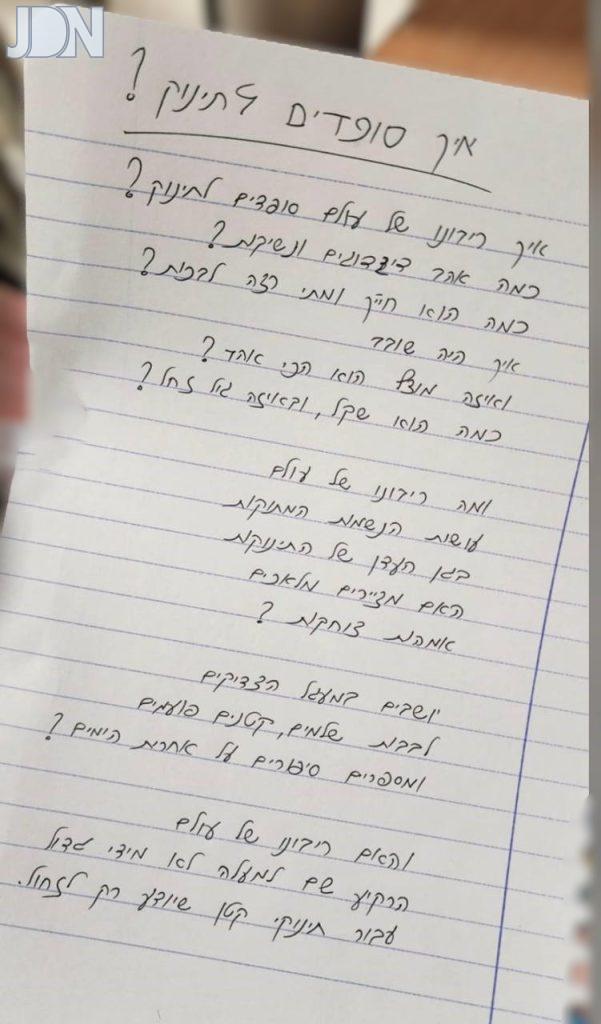 JDN
איך סופדים לתינוק?
איך ריבונו של עולם סופדים לתינוק?
כמה אהב דיגדוגים ונשיקות?
כמה הוא חייך ומתי רצה לבכות?
איך היה שובב
ואיזה מוצץ הוא הכי אהד?
כמה הוא שקל, ובאיזה גיל זחל?
ומה ריבונו של עולם
עושות הנשמות המתוקות
בגן העדן של התינוקות
האם מציירים מלאכים
אמהות צוחקות?
יושבים במעגל הצדיקים
לבבות שלמים, קטנים פועמים
ומספרים סיפורים על אחרית הימים?
והאם ריבונו של עולם
הרקיע שם למעלה לא מידי גדול
עבור תינוקי קטן שיודע רק לזחול.